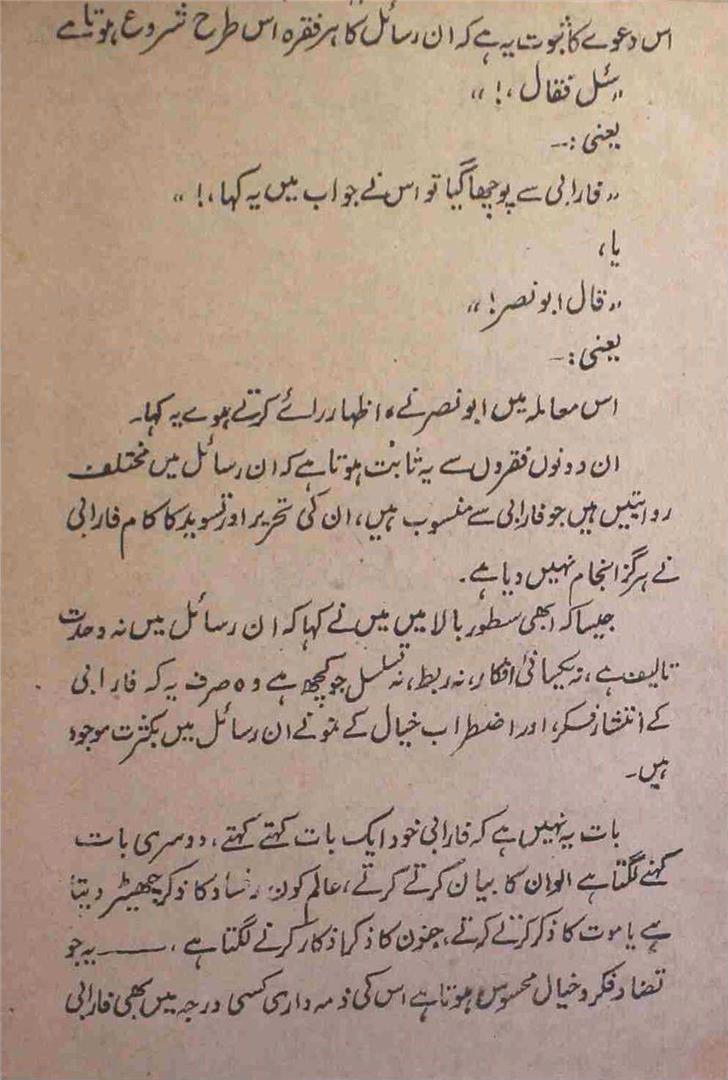 اس دعوے کا ثبوت یہ ہے کہ ان رسائل کا ہر فقرہ اس طرح شروع ہوتا ہے
„سُئل فقال ،! „
یعنی :ـــ
„ فارابی سے پوچھا گیا تو اس نے جواب میں یہ کہا ،! „
یا،
„ قال ابو نصر! „
یعنی :ـ
اس معاملہ میں ابو نصر نے ، اظہار رائے کرتے ہوے یہ کہا۔
ان دونوں فقروں سے یہ ثابت ہوتا ہے کہ ان رسائل میں مختلف
روایتیں ہیں جو فارابی سے منسوب ہیں، ان کی تحریر اور تسوید کا کام فارابی
نے ہرگز انجام نہیں دیا ہے۔
جیسا کہ ابھی سطور بالا میں میں نے کہا کہ ان رسائل میں نہ وحدت
تالیف ہے، نہ یکسانی افکار، نہ ربط، نہ تسلسل جو کچھ ہے وہ صرف یہ کہ فارابی
کے انتشار فکر، اور اضطراب خیال کے نمونے ان رسائل میں بکثرت موجود
ہیں۔
بات یہ نہیں ہے کہ فارابی خود ایک بات کہتے کہتے، دوسری بات
کہنے لگتا ہے الوان کا بیان کرتے کرتے، عالم کون فساد کا ذکر چھیڑ دیتا
ہے یا موت کا ذکر کرتے کرتے، جنون کا ذکر اذکار کرنے لگتا ہے، ــــــ یہ جو
تضاد فکر و خیال محسوس ہوتا ہے اس کی ذمہ داری کسی درجہ میں بھی فارابی